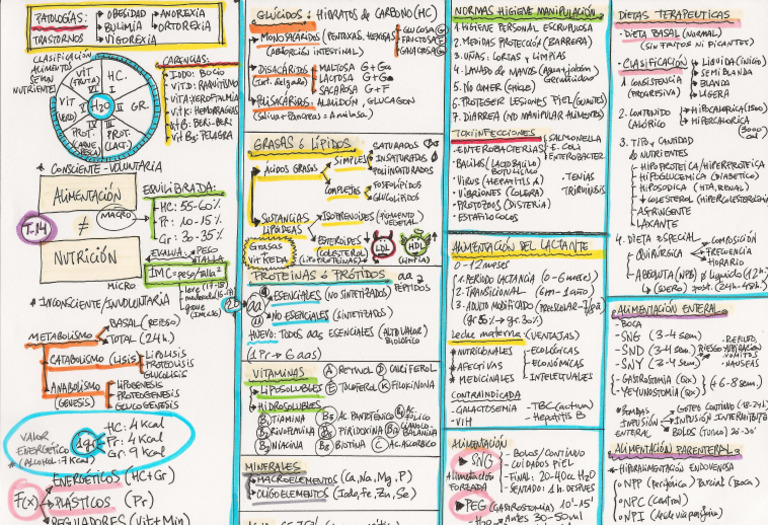 PATOLOGÍAS: OBESIDAD ANOREXIA
BULIMIA ORTOREXIA
TRASTORNOS VIGOREXIA
CLASIFICACIÓN
ALIMENTOS
SEGÚN
NUTRIENTES
VIT (FRUTA) HC. I
VIT GR.
H2O
PROT. PROT.
CARENCIAS:
IODO: BOCIO
VIT D: RAQUITISMO
VIT A: XEROFTALMIA
VIT K: HEMORRAGIAS
VIT B1: BERI-BERI
VIT B3: PELAGRA
* CONSCIENTE-VOLUNTARIA
ALIMENTACIÓN
MACRO
T.14
≠
NUTRICIÓN
MICRO
* INCONSCIENTE/INVOLUNTARIA
EQUILIBRADA:
HC: 55-60%
Pr: 10-15%
Gr: 30-35%
EVALUA: PESO
TALLA
IMC = peso/talla²
METABOLISMO BASAL (REPOSO)
TOTAL (24h.)
CATABOLISMO (LISIS) LIPOLISIS
PROTEOLISIS
GLUCOLISIS
ANABOLISMO (GENESIS) LIPOGENESIS
PROTEOGENESIS
GLUCOGENESIS
VALOR
ENERGÉTICO
(ALCOHOL: 7 Kcal)
1gr
HC: 4 Kcal
Pr: 4 Kcal
Gr: 9 Kcal
F(x) ENERGÉTICOS (HC+Gr)
PLÁSTICOS (Pr)
REGULADORES (Vit+Min)
GLÚCIDOS ó HIDRATOS de CARBONO (HC)
MONOSACÁRIDOS (PENTOXAS, HEXOSAS) GLUCOSA G
(ABSORCIÓN INTESTINAL) FRUCTOSA F
GALACTOSA Ga
DISACÁRIDOS MALTOSA G+G
(int. delgado) LACTOSA G+Ga
SACAROSA G+F
POLISACÁRIDOS ALMIDÓN, GLUCAGON
(Saliva + Pancreas = Amilasa)
GRASAS ó LÍPIDOS
ÁCIDOS GRASOS SIMPLES SATURADOS
INSATURADOS
POLIINSATURADOS
COMPLEJOS FOSFOLÍPIDOS
GLUCOLÍPIDOS
SUSTANCIAS LIPOIDEAS ISOPRENOIDES (PIGMENTO VEGETAL)
ESTEROIDES (COLESTEROL) (LIPOPROTEÍNAS) LDL HDL
(LIMPIA)
GRASAS
VIT KEDA
PROTEINAS ó PRÓTIDOS aa
PÉPTIDOS
20 aa
ESENCIALES (NO SINTETIZADOS)
NO ESENCIALES (SINTETIZADOS)
HUEVO: TODOS aas ESENCIALES (ALTO VALOR BIOLÓGICO)
(1 Pr → 6 aas)
VITAMINAS A Retinol D CALCIFEROL
LIPOSOLUBLES E Tocoferol K FILOKINONA
HIDROSOLUBLES
B1 TIAMINA B5 AC. PANTOTÉNICO B9 AC. FÓLICO
B2 RIVOFLAVINA B6 PIRIDOXINA B12 CIANOCOBALAMINA
B3 NIACINA B8 BIOTINA C AC. ASCÓRBICO
MINERALES
MACROELEMENTOS (Ca, Na, Mg, P)
OLIGOELEMENTOS (Iodo, Fe, Zn, Se)
NORMAS HIGIENE MANIPULACIÓN
1. HIGIENE PERSONAL ESCRUPULOSA
2. MEDIDAS PROTECCIÓN (BARRERA)
3. UÑAS: CORTAS Y LIMPIAS
4. LAVADO de MANOS (Agua+jabón germicida)
5. NO COMER (CHICLE)
6. PROTEGER LESIONES PIEL (GUANTES)
7. DIARREA (NO MANIPULAR ALIMENTOS)
TOXIINFECCIONES
- ENTEROBACTERIAS SALMONELLA
E. Coli
ENTEROBACTER
- BACILOS (LACTOBACILO BOTULISMO)
- VIRUS (HEPATITIS A)
- VIBRIONES (COLERA)
- PROTOZOOS
- ESTAFILOCOCOS
- TENIAS
- TRIQUINOSIS
ALIMENTACIÓN DEL LACTANTE
0-12 MESES
1. PERIODO LACTANCIA (0-6 meses)
2. TRANSICIONAL (6m-1año)
3. ADULTO MODIFICADO (PREESCOLAR-7/8a)
(gr 55% → gr 30%)
Leche materna (VENTAJAS)
* NUTRICIONALES - ECOLÓGICAS
* AFECTIVAS - ECONÓMICAS
* MEDICINALES - INTELECTUALES
CONTRAINDICADA
- GALACTOSEMIA - TBC (activa)
- VIH - Hepatitis B
ALIMENTACIÓN
SNG
ALIMENTACIÓN
FORZADA
- BOLOS/CONTINUO
- CUIDADOS PIEL
- FINAL: 20-40cc H2O
- SENTADO: 1h. DESPUES
PEG (GASTROSTOMIA) 10'-15'
- H2O ANTES 30-50ml
DIETAS TERAPEUTICAS
- DIETA BASAL (NORMAL)
(SIN FRITOS NI PICANTES)
- CLASIFICACIÓN
1 CONSISTENCIA
(PROGRESIVA)
LIQUIDA (INICIO)
SEMIBLANDA
BLANDA
LIGERA
2. CONTENIDO CALÓRICO HIPOCALORICA (1500)
HIPERCALORICA (3000)
3. TIPO y CANTIDAD
NUTRIENTES
HIPOPROTEICA/HIPERPROTEICA
HIPOGLUCEMICA (DIABETICO)
HIPOSODICA (HTA, RENAL)
↓ COLESTEROL (HIPERCOLESTEROLEMIA)
ASTRINGENTE
LAXANTE
4. DIETA ESPECIAL COMPOSICIÓN
QUIRÚRGICA FRECUENCIA
HORARIO
ABSOLUTA (NPB) líquido (12h.)
(SUERO) post. (24h-48h.)
ALIMENTACIÓN ENTERAL
- BOCA
- SNG (3-4 sem)
- SND (3-4 sem) RIESGO
- SNY (3-4 sem)
- REFLUJO
- ASPIRACIÓN
- VOMITOS
- NAUSEAS
- GASTROSTOMIA (Qx)
- YEYUNOSTOMIA (Qx)
(+6-8 sem)
* BOMBAS INFUSIÓN ENTERAL
GOTEO CONTINUO
INFUSIÓN INTERMITENTE
BOLOS (LENTO) 20'-30'
ALIMENTACIÓN PARENTERAL
* HIPERALIMENTACIÓN ENDOVENOSA
NPP (PERIFERICA) (Parcial) (Baca)
NPC (CENTRAL)
NPI